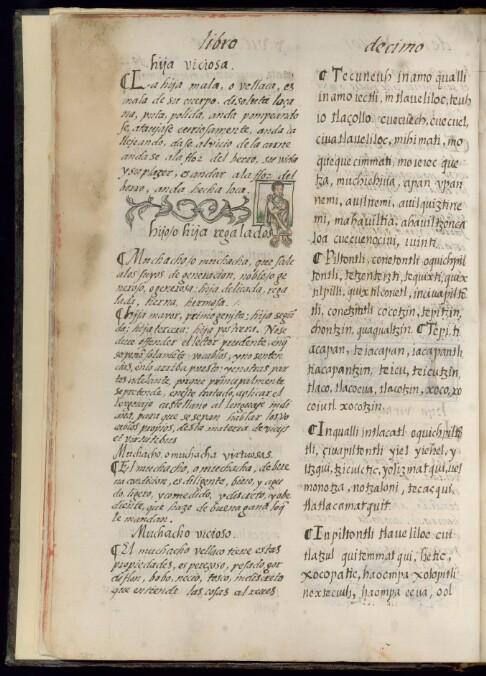 libro
decimo
hija viciosa.
¶ La hija mala, o vellaca, es
mala de su cuerpo. disoluta loça
na, puta, polida, anda pompeando
se, ataviase curiosamente, anda ca
llejeando, dase al vicio de la carne
andase ala flor del berro, su vida
y su plazer, es andar ala flor del
berro, anda hecha loca.
hijo/o hija regalados
¶ Muchacho/o muchacha, que sale
alos suyos de generacion, noble/o ge
neroso, o generosa: hija delicada, rega
lada, tierna, hermosa.
¶ hija mayor, primogenita: hija segun
da: hija tercera: hija postrera. No se
deve offender el lector prudente, en q̃
se ponẽ solamẽte vocablos, y no senten
cias, en lo arriba puesto: y en otras par
tes adelante, porque principalmente
se pretende, en este tratado, aplicar el
lenguaje castellano al lenguaje indi
ano, para que se sepan hablar los vo
cablos propios, desta materia de vicijs
et virtutibus
Muchacho, o muchacha virtuosas.
¶ El muchacho, o muchacha, de bue
na condicion, es diligente, bivo, y agu
do, ligero, y comedido, y discreto, y obe
diente, que haze de buena gana lo q̃
le mandan.
Muchacho vicioso.
¶ El muchacho vellaco tiene estas
propiedades, es perezoso, pesado, gor
deflon, bobo, necio, tosco, indiscreto
que entiende las cosas al reves
¶ Tecuneuh in amo qualli
in amo iectli, in tlaueliloc, teuh
io tlaçollo cuecuech, cuecuel,
ciuatlaueliloc, mihimati, mo
quequecimmati, moieiec que
tza, muchichiua, apan xpan
nemi, auilnemi, auilquiztine
mi, mahauiltia, ahauiltzonca
loa cuecuenocini, iuinti.
¶ Piltontli, conetontli oquichpil
tontli, tetzontzintli, tequixti, quix
tilpilli, quixtilconetl, inciuapiltõ
tli, conetzintli cocotzin, tepitzin,
chontzin, quaqualtzin. ¶ Tepi, ti
acapan, teiacapan, iacapantli
tiacapantzin, teicu, teicutzin,
tlaco, tlacoeua, tlacotzin, xoco, xo
coiutl xocotzin.
¶ In qualli intlacatl oquichpiltõ
tli, çiuapiltontli yiel, yiehel, y
itzqui, tzicuictic, yolizmatqui, vel
monotza, notzaloni, tecacqui,
tlatlacamatquit.
¶ In piltontli tlaueliloc cui
tlatzul quitemmatqui, hetic,
xocopatic, haoompa xolopitli
nextecuili, haompa eeua, ool